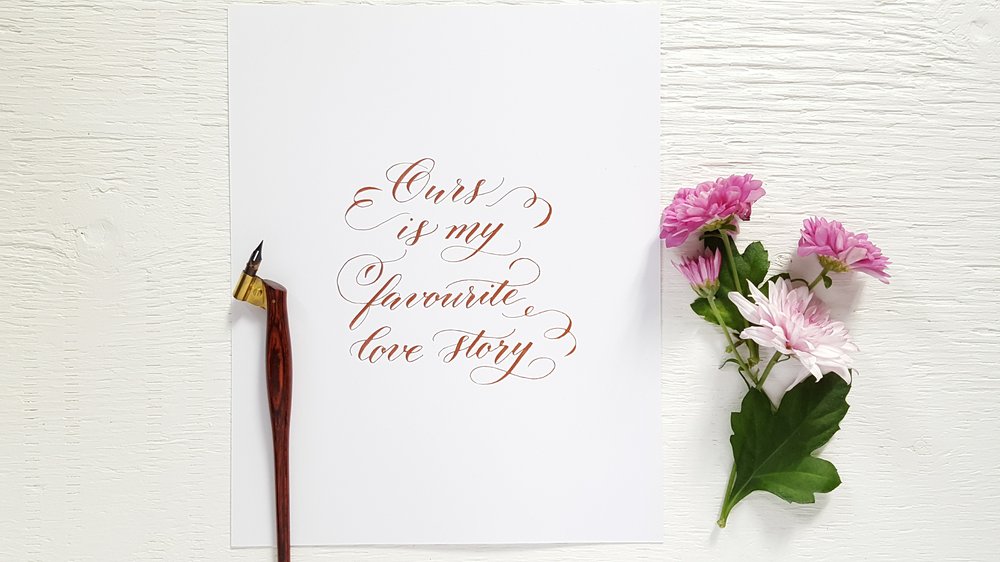 Ours
is my
favourite
love story